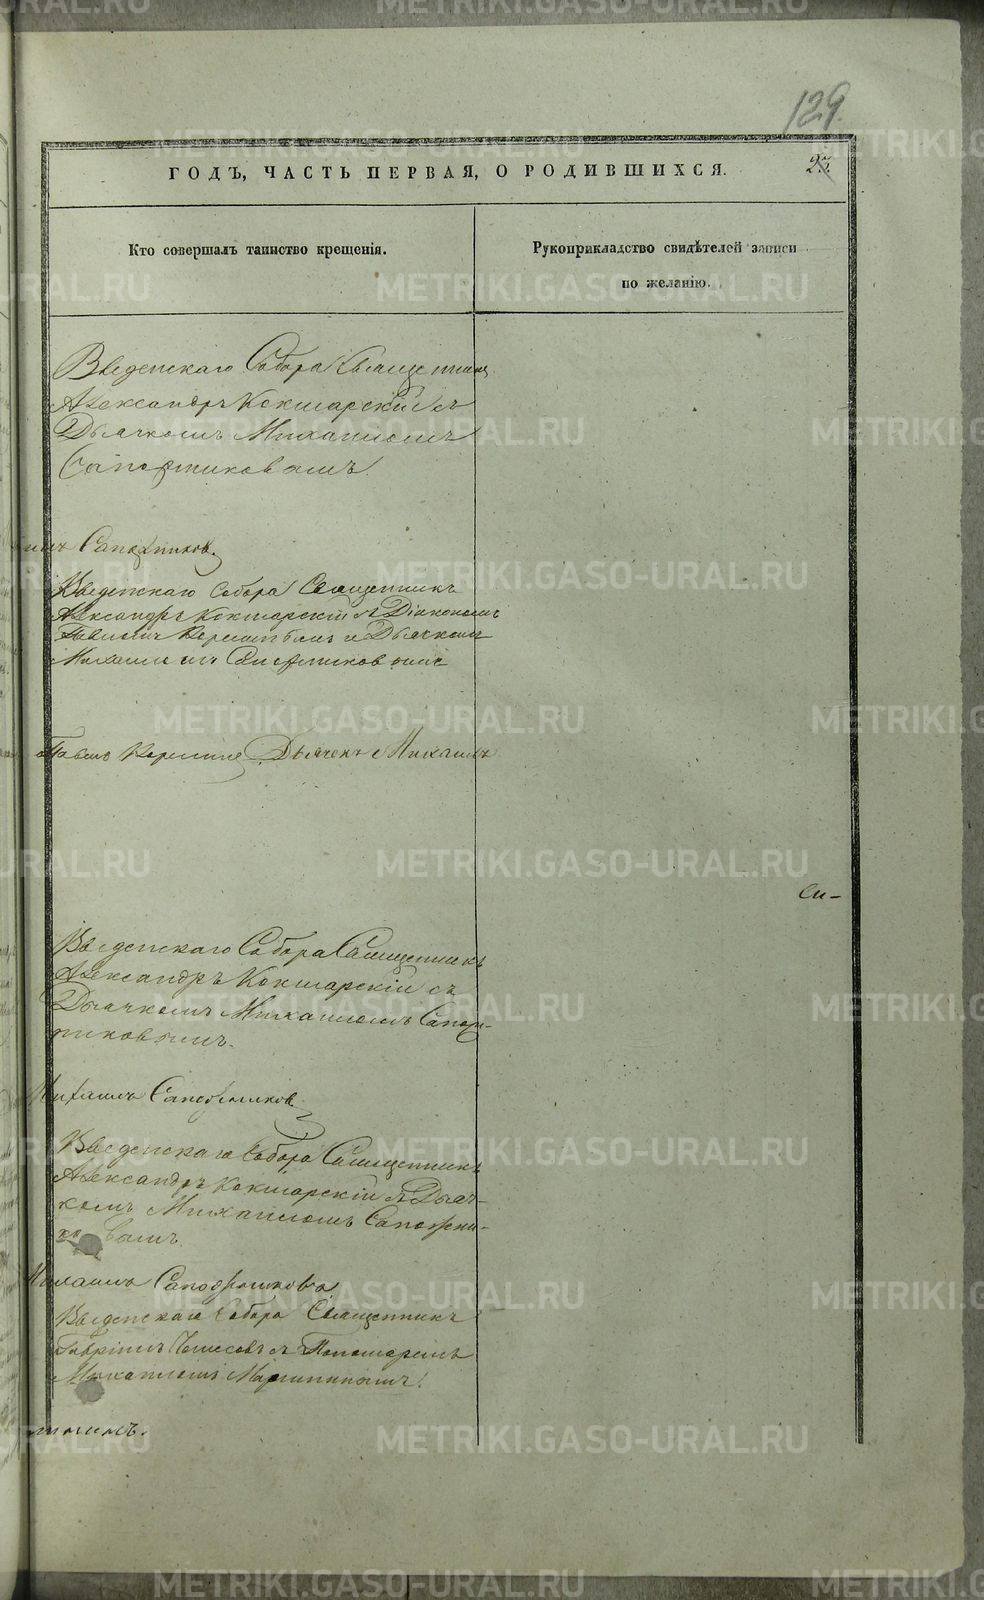 129.
ГОДЪ, ЧАСТЬ ПЕРВАЯ, О РОДИВШИХСЯ.
23.
Кто совершалъ таинство крещенія.
Рукоприкладство свидѣтелей записи
по желанію.
Введенскаго Собора Священникъ
Александръ Кокшарскій съ
Дьячкомъ Михаиломъ
Сапожниковымъ.
Сапожников.
Введенскаго Собора Священникъ
Александръ Кокшарскій съ Діакономъ
Павломъ и Дьячкомъ
Михаиломъ Сапожниковымъ
Павелъ Дьячекъ Михаилъ
Си-
Введенскаго Собора Священникъ
Александръ Кокшарскій съ
Дьячкомъ Михаиломъ Сапож-
никовымъ.
Михаилъ Сапожников
Введенскаго Собора Священникъ
Александръ Кокшарскій съ Дьяч-
комъ Михаиломъ Сапожни-
ковымъ.
Михаилъ Сапожниковъ
Введенскаго Собора Священникъ
Гавріилъ съ Пономаремъ
Михаиломъ
METRIKI.GASO-URAL.RU